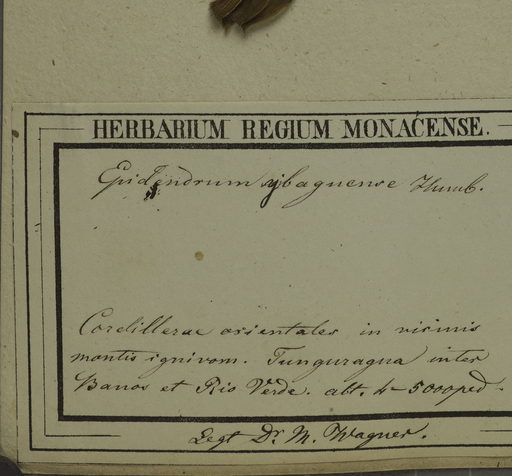 HERBARIUM REGIUM MONACENSE.
Epidendrum ybaguense Humb.
Cordillerae orientales in vicinis
montis ignivom. Tunguragua inter
Banos et Rio Verde. alt. 4-5000 ped.
Legt Dr. M. Wagner.